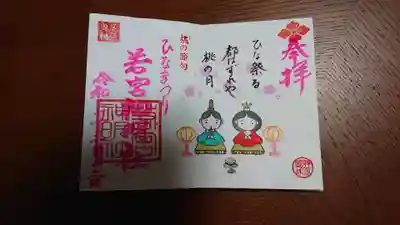 奉拝
ひな祭る
都はずれや
桃の月
桃の節句
ひなまつり
若宮神明社